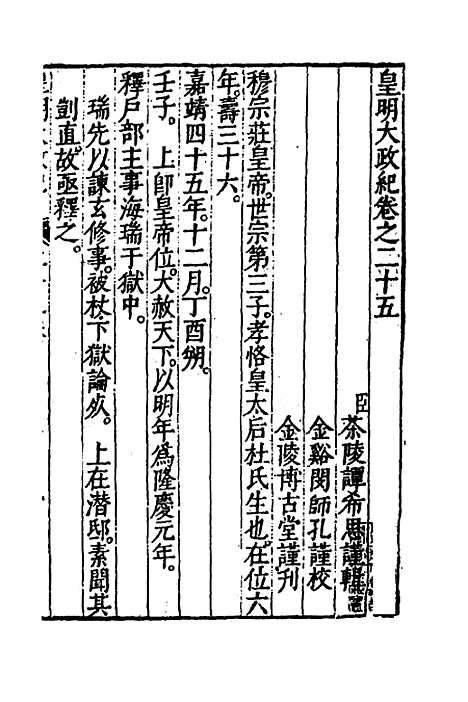 皇明大政紀卷之二十五
臣茶陵譚希思謹輯
金谿閔師孔謹校
金陵博古堂謹刊
穆宗莊皇帝。世宗第三子。孝恪皇太后杜氏生也。在位六
年。壽三十六。
嘉靖四十五年。十二月。丁酉朔。
壬子。　上卽皇帝位。大赦天下。以明年爲隆慶元年。
釋戶部主事海瑞于獄中。
瑞先以諫玄修事。被杖下獄論死。　上在潛邸。素聞其
剴直。故亟釋之。